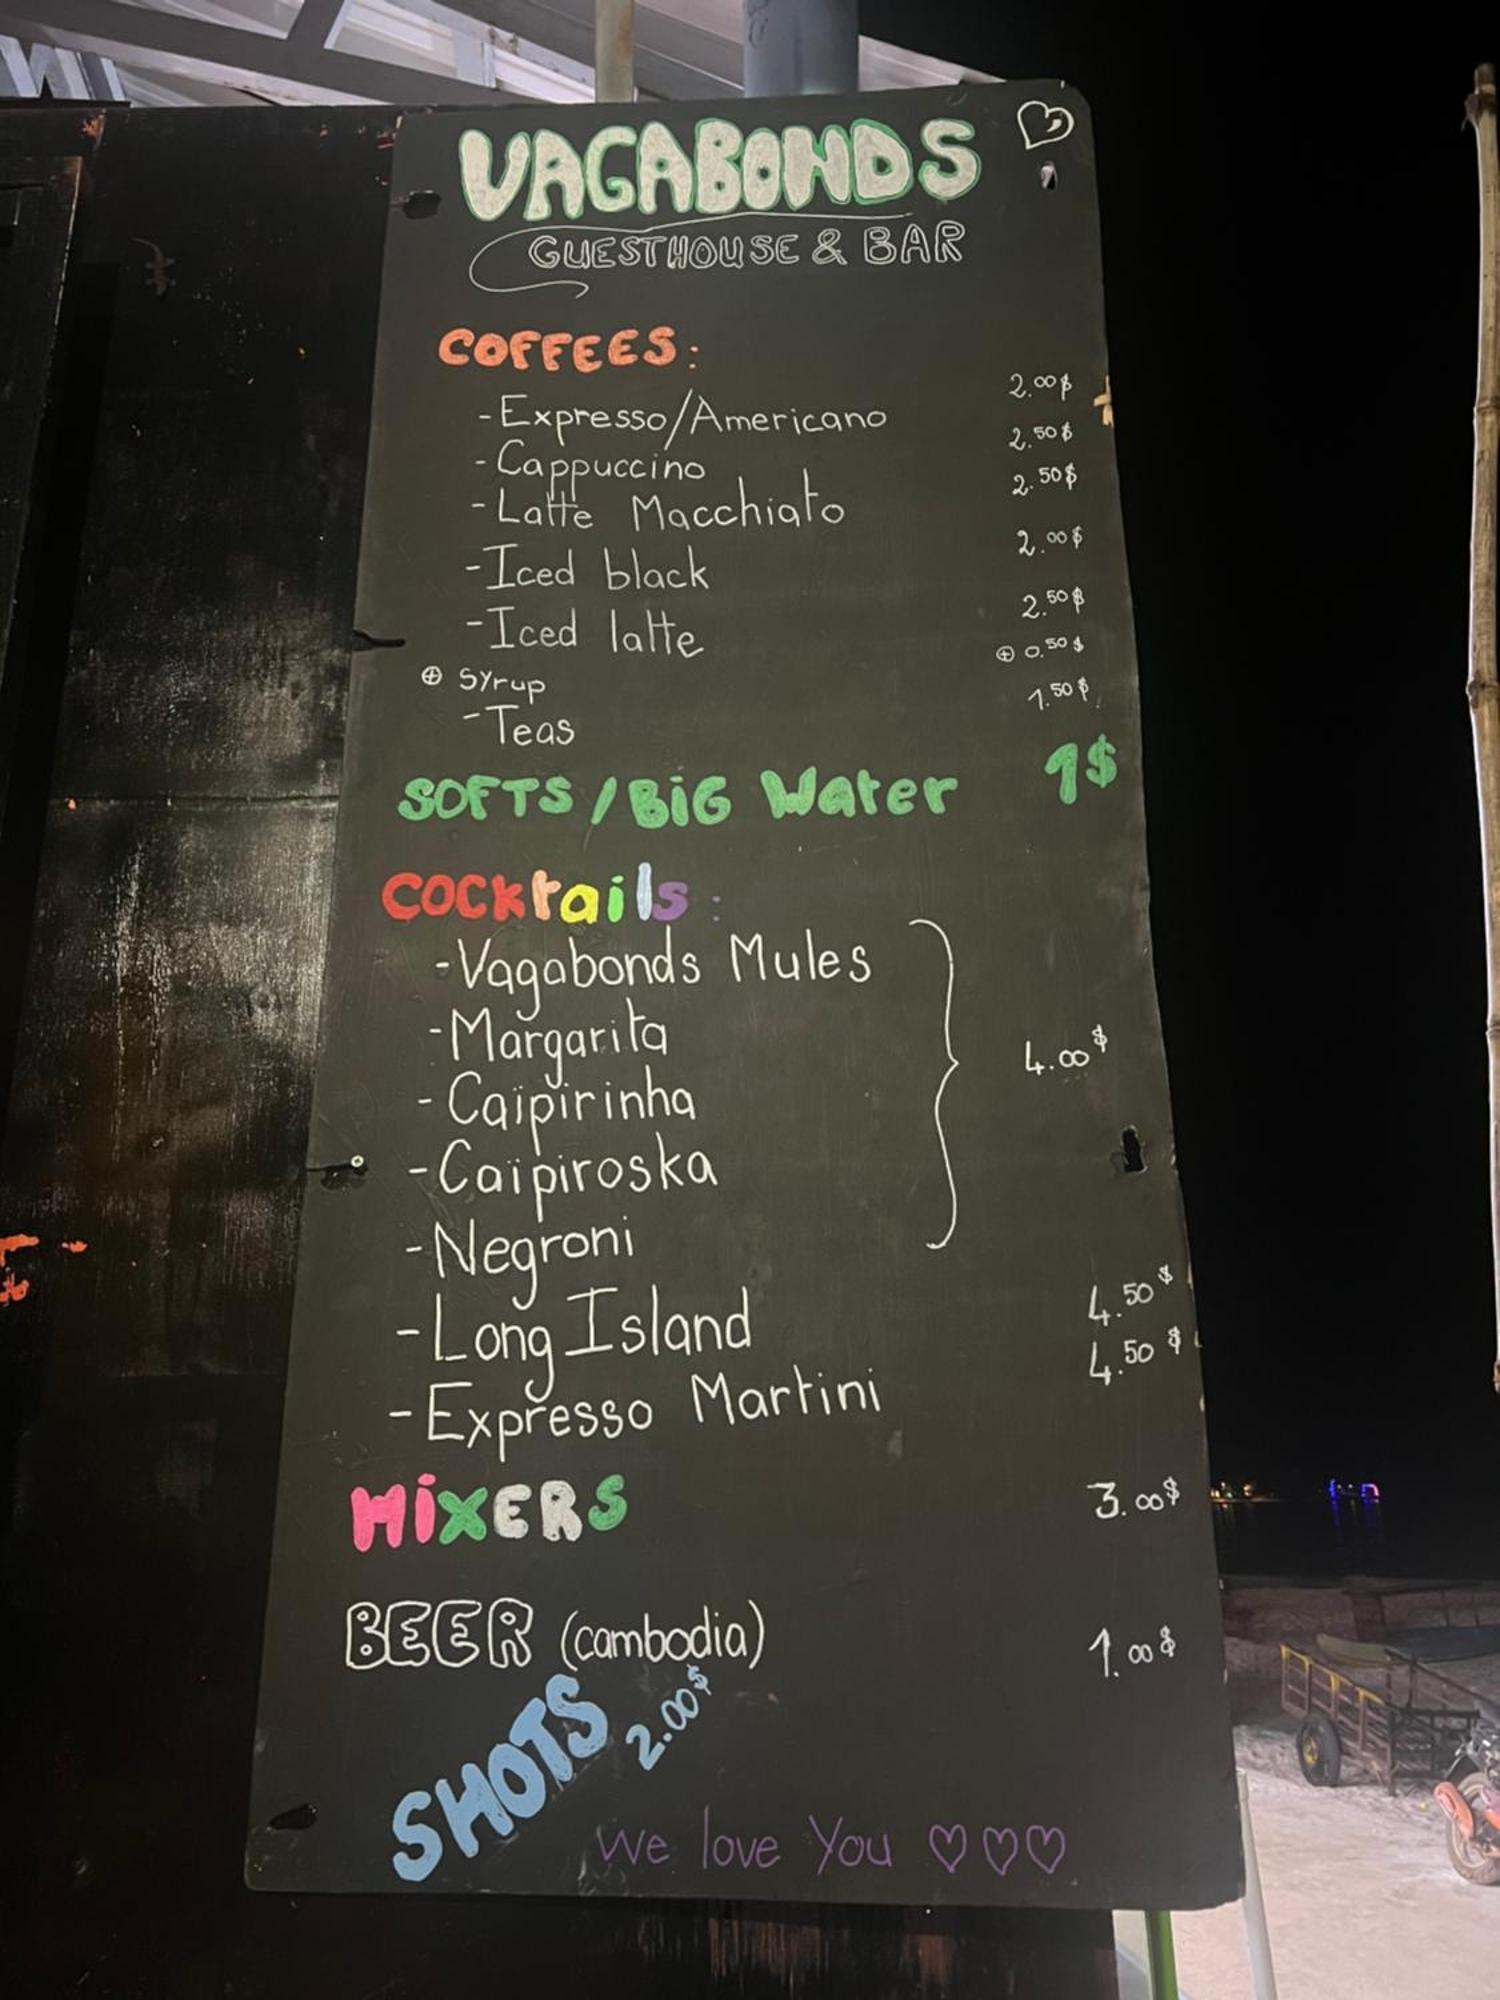 VAGABONDS
GUESTHOUSE & BAR
COFFEES:
-Expresso/Americano 2.00$
-Cappuccino 2.50$
-Latte Macchiato 2.50$
-Iced black 2.00$
-Iced latte 2.50$
⊕ Syrup ⊕ 0.50$
-Teas 1.50$
SOFTS/BiG Water 1$
COCKtails:
-Vagabonds Mules
-Margarita
-Caïpirinha
-Caïpiroska
-Negroni
4.00$
-Long Island 4.50$
-Expresso Martini 4.50$
MiXERS 3.00$
BEER (cambodia) 1.00$
SHOTS 2.00$
We love You ♡♡♡